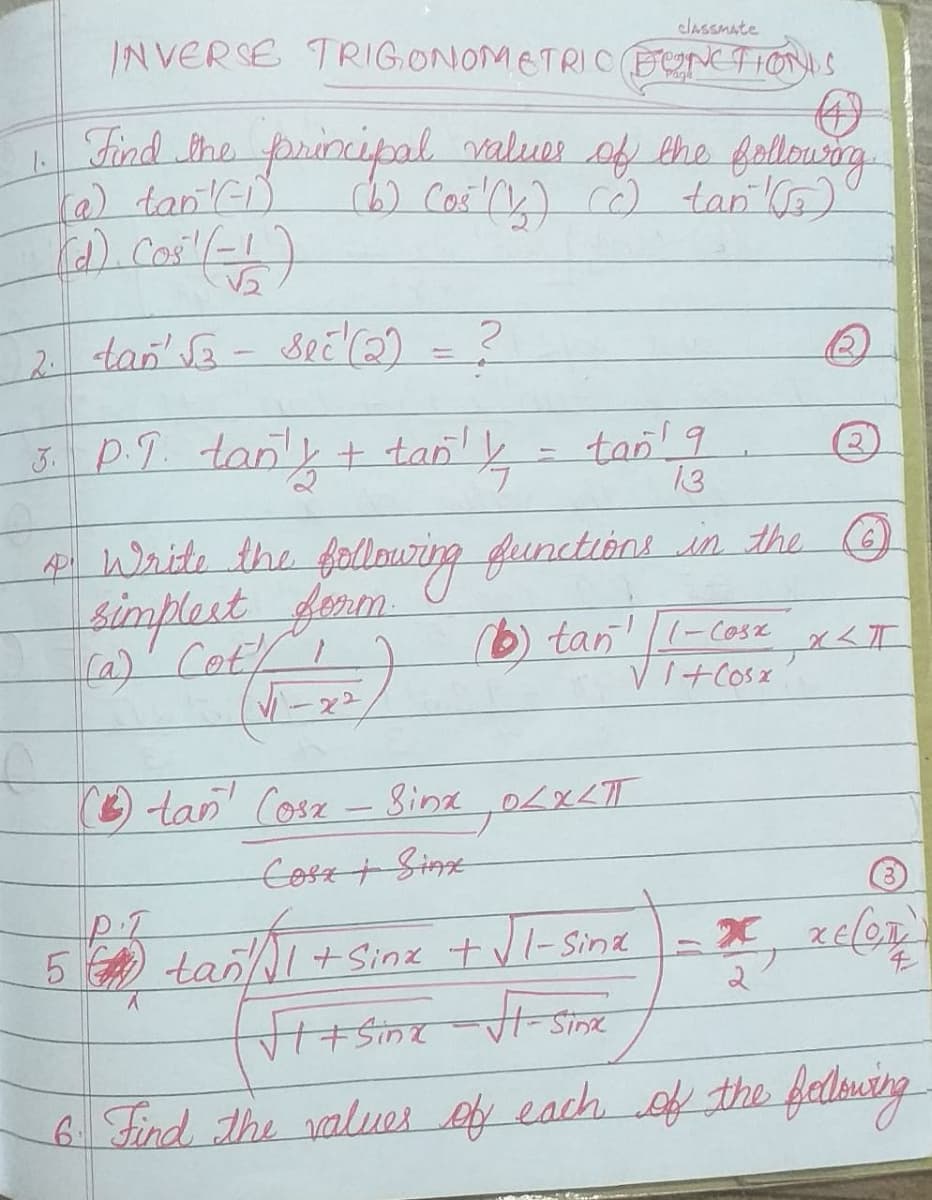 classmate
INVERSE TRIGONOMETRIC FUNCTIONS
Page
④
1. Find the principal values of the following.
(a) tan⁻¹(-1) (b) Cos⁻¹(1/2) (c) tan⁻¹(√3)
(d). Cos⁻¹(-1/√2)
2. tan⁻¹√3 - sec⁻¹(2) = ? ②
3. P.T. tan⁻¹ 1/2 + tan⁻¹ 1/7 = tan⁻¹ 9/13. ②
4. Write the following functions in the ⑥
simplest form.
(a) Cot⁻¹(1/√1-x²) (b) tan⁻¹ √(1-Cosx/1+Cosx), x<π
(c) tan⁻¹ Cosx - Sinx/Cosx + Sinx, 0<x<π
③
P.T
5 tan⁻¹(√1+Sinx + √1-Sinx/√1+Sinx - √1-Sinx) = x/2, x∈(0,π/4)
6. Find the values of each of the following